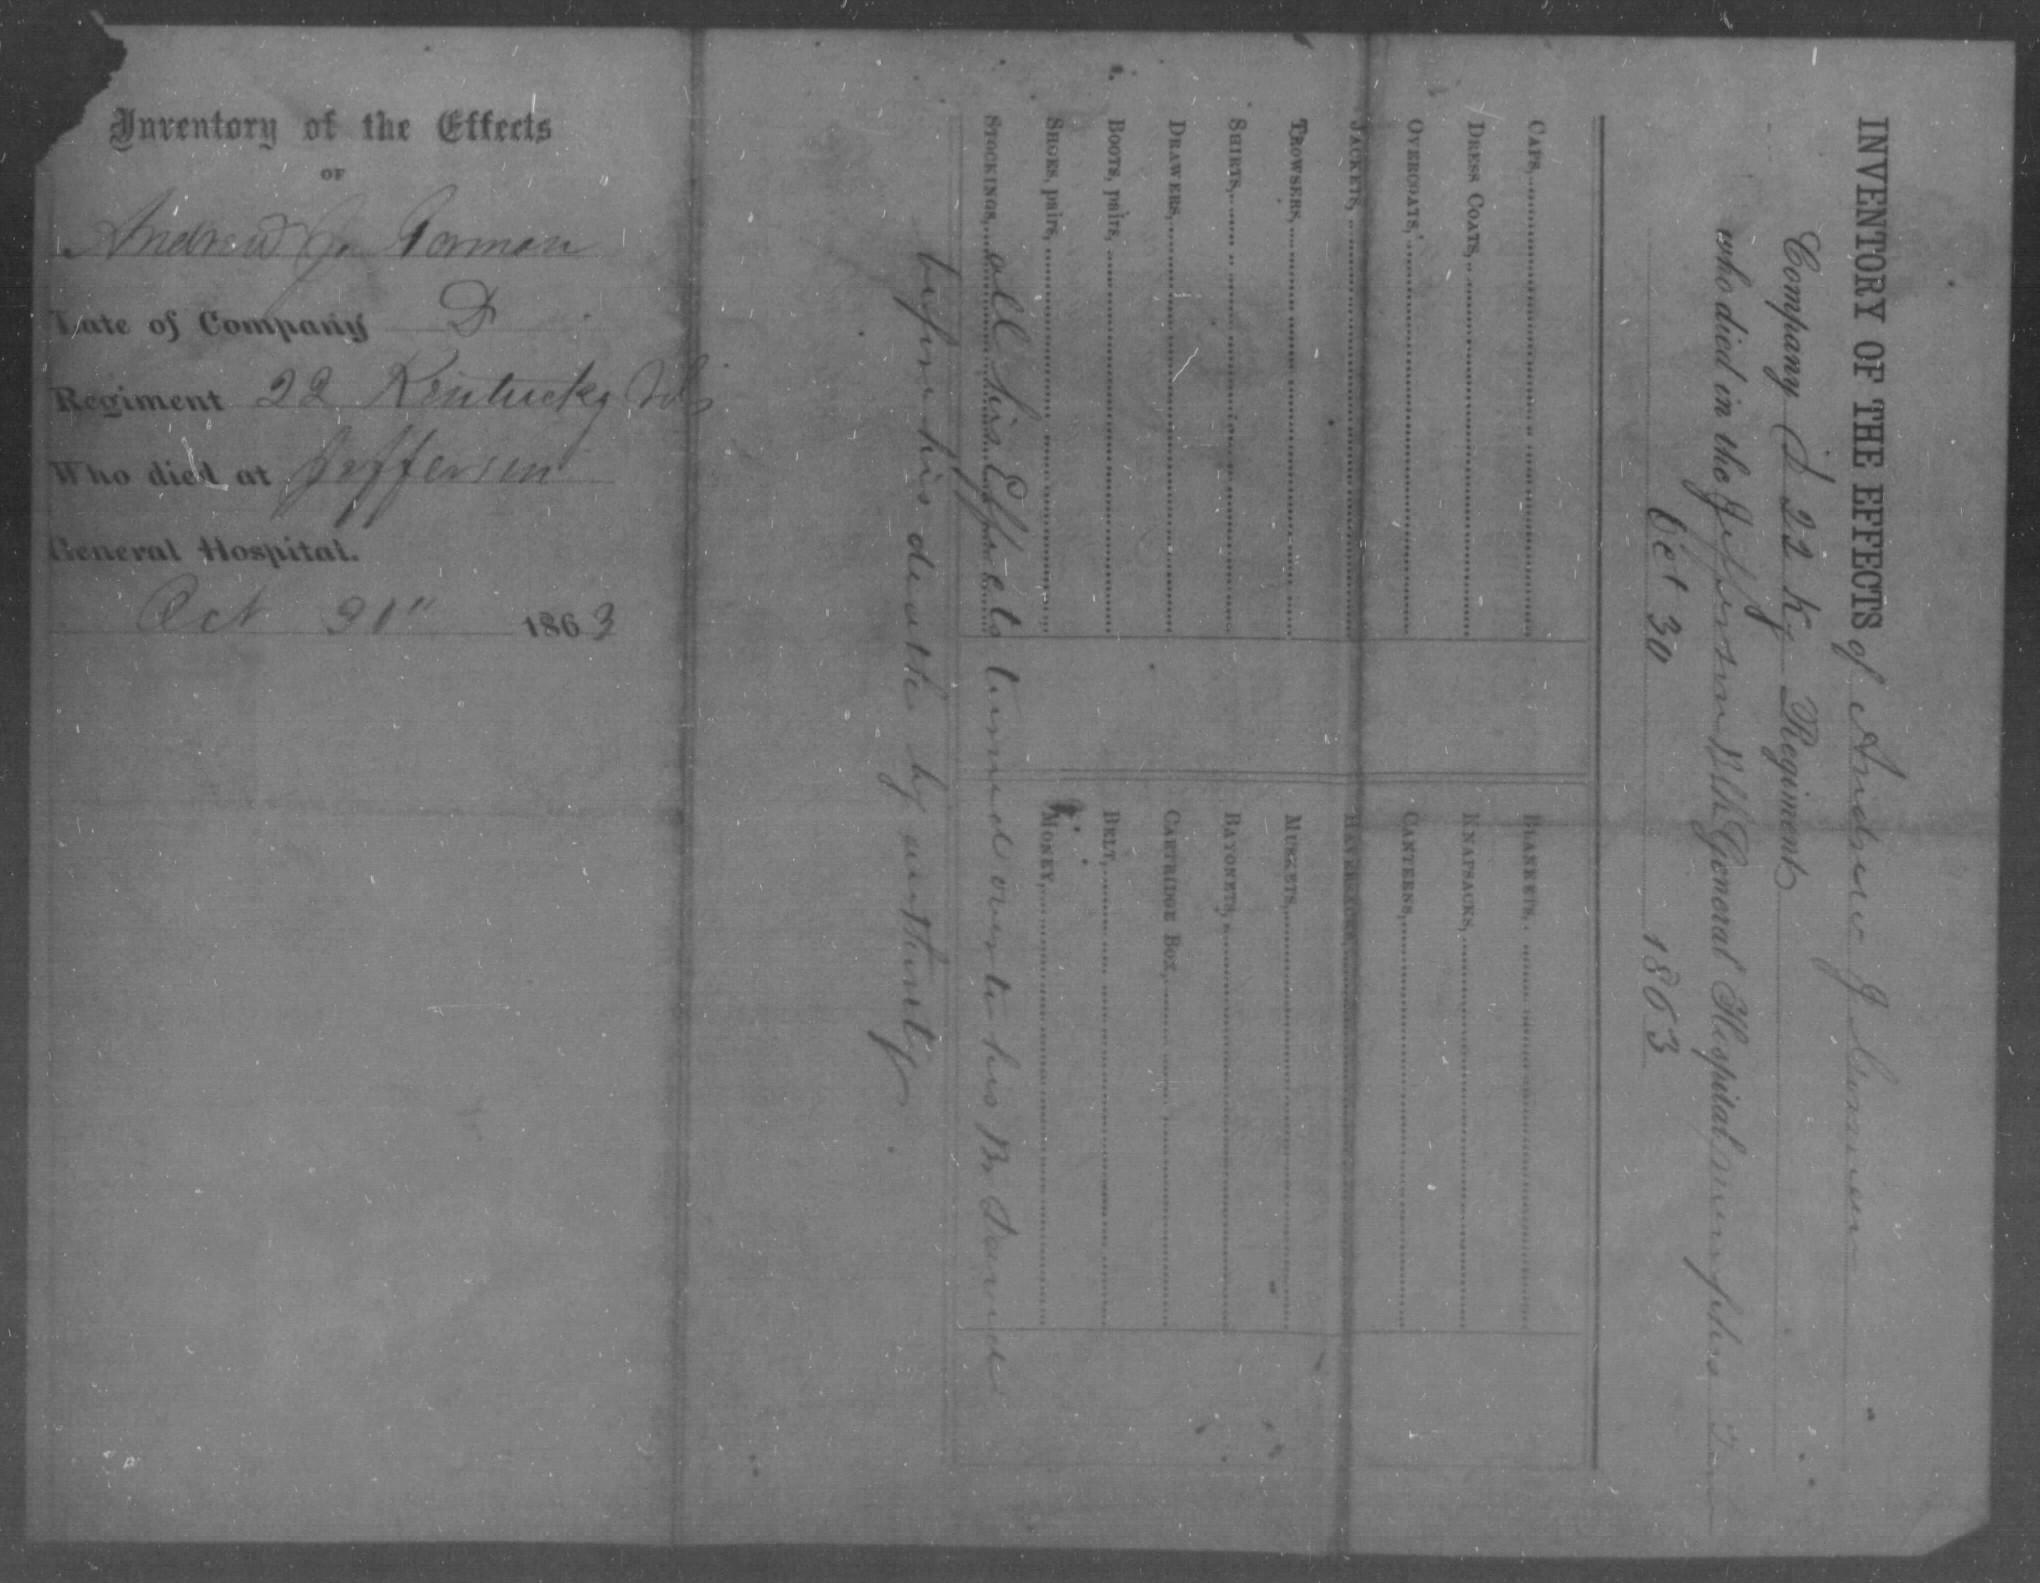 Inventory of the Effects
OF
Andrew J. Gorman
Late of Company D
Regiment 22 Kentucky Vols
Who died at Jefferson
General Hospital.
Oct 31" 1863
INVENTORY OF THE EFFECTS of Andrew J Gorman
Company D 22 Ky Regiment
who died in the Jefferson USA General Hospital Memphis Ten
Oct 30 1863
CAPS,
DRESS COATS,
OVERCOATS,
JACKETS,
TROWSERS,
SHIRTS,
DRAWERS,
BOOTS, pairs,
SHOES, pairs,
STOCKINGS,
BLANKETS,
KNAPSACKS,
CANTEENS,
HAVERSACKS,
MUSKETS,
BAYONETS,
CARTRIDGE BOX,
BELT,
MONEY,
all his Effects turned over to his
before his death by